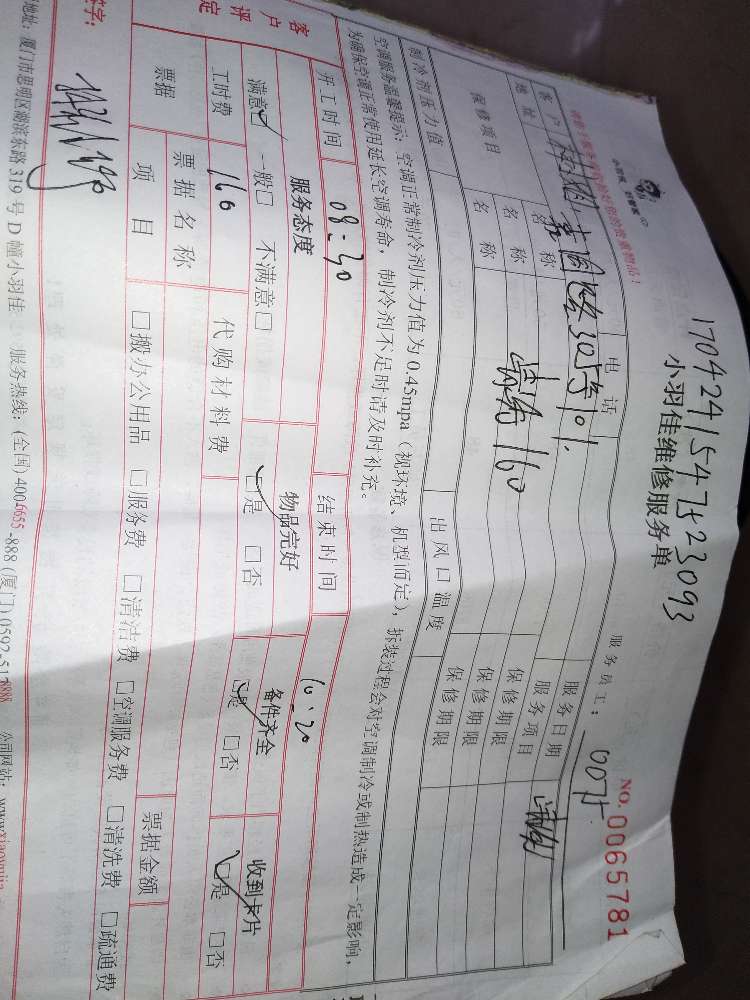 1704241547523093
小羽佳维修服务单
NO.0065781
服务员工：
客户
电话
服务日期
地址
嘉园路305号101
服务项目
保修项目
名称
保修期限
名称
160
保修期限
名称
保修期限
制冷剂压力值
出风口温度
空调服务温馨提示：空调正常制冷剂压力值为0.45mpa（视环境、机型而定），拆装过程会对空调制冷或制热造成一定影响，
为确保空调正常使用延长空调寿命，制冷剂不足时请及时补充。
开工时间
08:30
结束时间
10:20
客户评定
服务态度
物品完好
备件齐全
收到卡片
满意☑ 一般□ 不满意□
☑是 □否
☑是 □否
☑是 □否
工时费
160
代购材料费
票据
票据名称
票据金额
项目
□搬办公用品 □服务费 □清洁费 □空调服务费 □清洗费 □疏通费
签字：
地址：厦门市思明区湖滨东路319号D幢小羽佳 服务热线：(全国)4006655-888